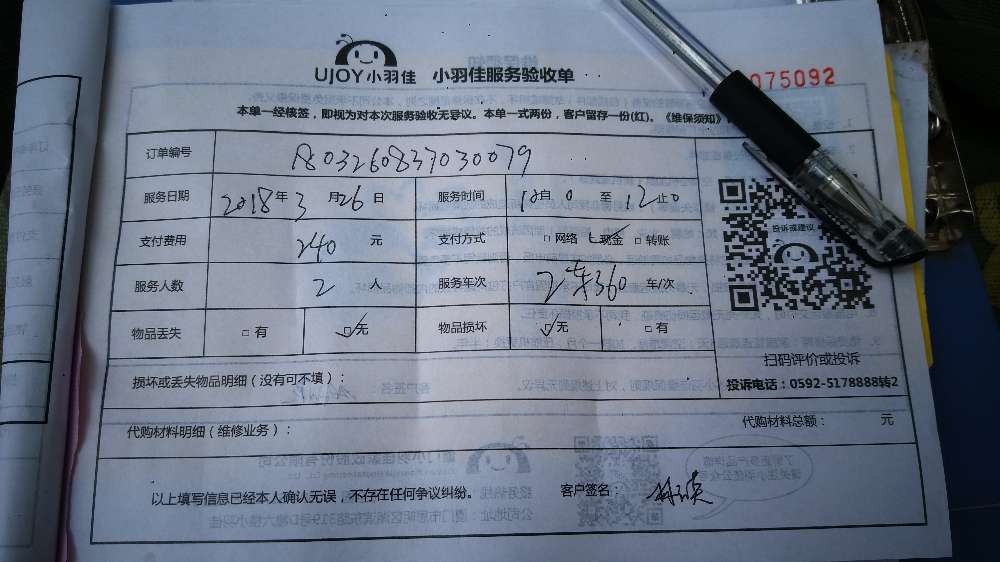 UJOY小羽佳 小羽佳服务验收单
075092
本单一经核签，即视为对本次服务验收无异议。本单一式两份，客户留存一份(红)。《维保须知》
订单编号
服务日期 2018年3月26日 服务时间 10自0至12止0
支付费用 240 元 支付方式 □网络 现金 □转账
服务人数 2 人 服务车次 车/次
物品丢失 □有 □无 物品损坏 □无 □有
投诉或建议
扫码评价或投诉
投诉电话：0592-5178888转2
损坏或丢失物品明细（没有可不填）：
代购材料明细（维修业务）： 代购材料总额： 元
以上填写信息已经本人确认无误，不存在任何争议纠纷。 客户签名：